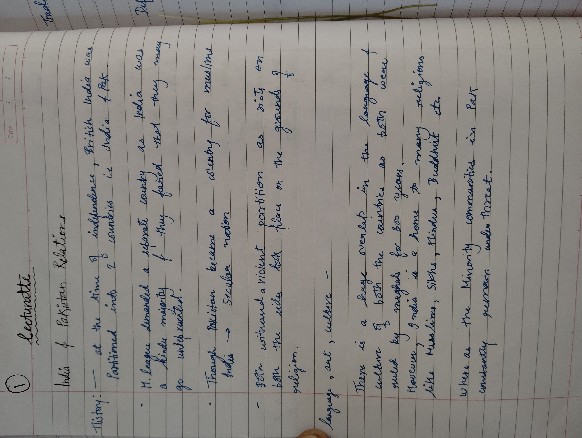 ① Lecturette
India & Pakistan Relations
History: — at the time of independence, British India was
Partitioned into 2 countries ie India & Pak
• M. league demanded a separate country as India was
a Hindu majority & they feared that they may
go unrepresented.
• Though Pakistan became a country for muslims
India → Secular nation
- Both witnessed a violent partition as riots on
both the side took place on the grounds of
religion.
language, art, culture —
There is a huge overlap in the language &
culture of both the countries as both were
ruled by mughals for 300 years.
However, India is a home to many religions
like Muslims, Sikhs, Hindus, Buddhist etc
where as the Minority communities in Pak
constantly under threat.